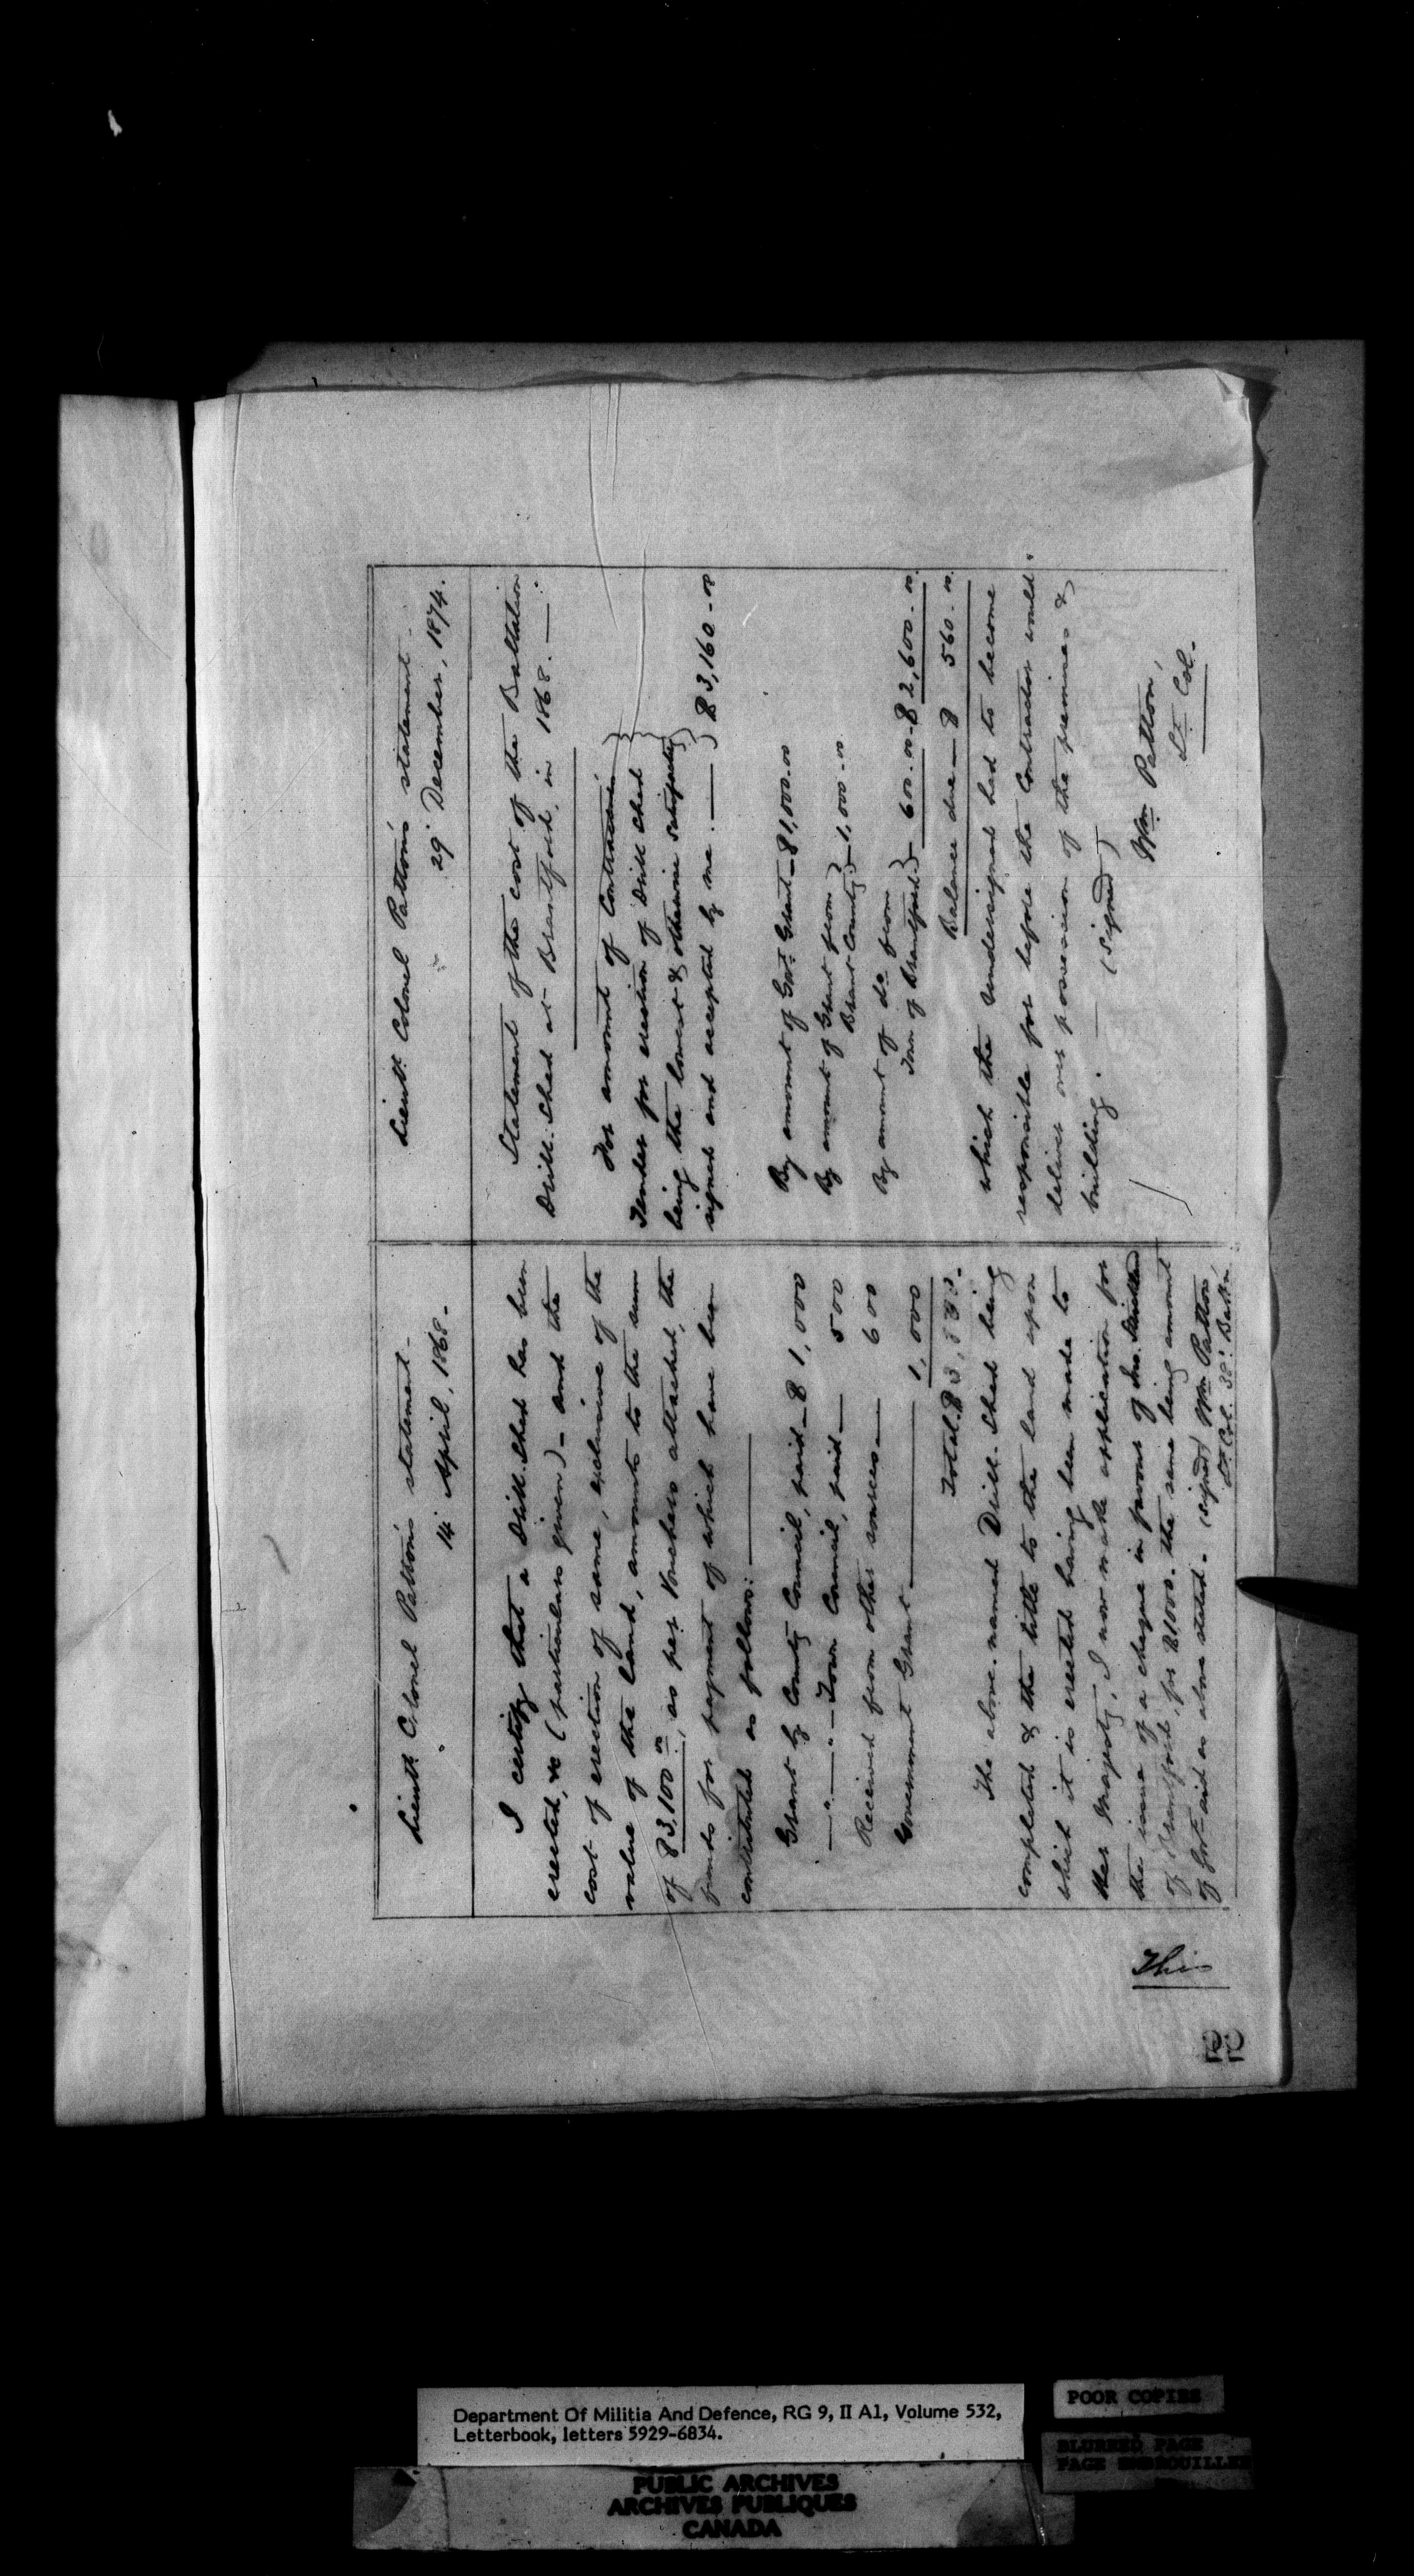 Lieutt. Colonel Patton's statement -
14 April, 1868 -
I certify that a Drill-Shed has been
erected, &c (particulars given) - and the
cost of erection of same, exclusive of the
value of the land, amounts to the sum
of $3,100.00, as per Vouchers attached, the
funds for payment of which have been
contributed as follows:
Grant by County Council, paid - $1,000
— " — " — Town Council, paid — 500
Received from other sources — 600
Government Grant — 1,000
Total. $3,
The above-named Drill-Shed being
completed & the title to the land upon
which it is erected having been made to
Her Majesty, I now make application for
the issue of a cheque in favour of Jno.
of Brantford, for $1000. the same being amount
of Govt. aid as above stated - (signed) Wm. Patton,
Lt. Col. 38th. Battn.
Lieutt. Colonel Patton's statement -
29 December, 1874.
Statement of the cost of the Battalion
Drill-Shed at Brantford, in 1868. —
For amount of Contractor's
Tender for erection of Drill Shed
being the lowest & otherwise satisfactory
signed and accepted by me. — $3,160-00
By amount of Govt. Grant - $1,000.00
By amount of Grant from
Brant County - 1,000-00
By amount of do. from
Town of Brantford - 600.00 - $2,600-00.
Balance due - $ 560-00.
which the undersigned had to become
responsible for before the Contractor would
deliver over possession of the premises &
building. — (signed)
Wm. Patton,
Lt. Col.
This
22
Department Of Militia And Defence, RG 9, II A1, Volume 532,
Letterbook, letters 5929-6834.
POOR COPIES
BLURRED PAGE
PAGE EMBROUILLEE
PUBLIC ARCHIVES
ARCHIVES PUBLIQUES
CANADA